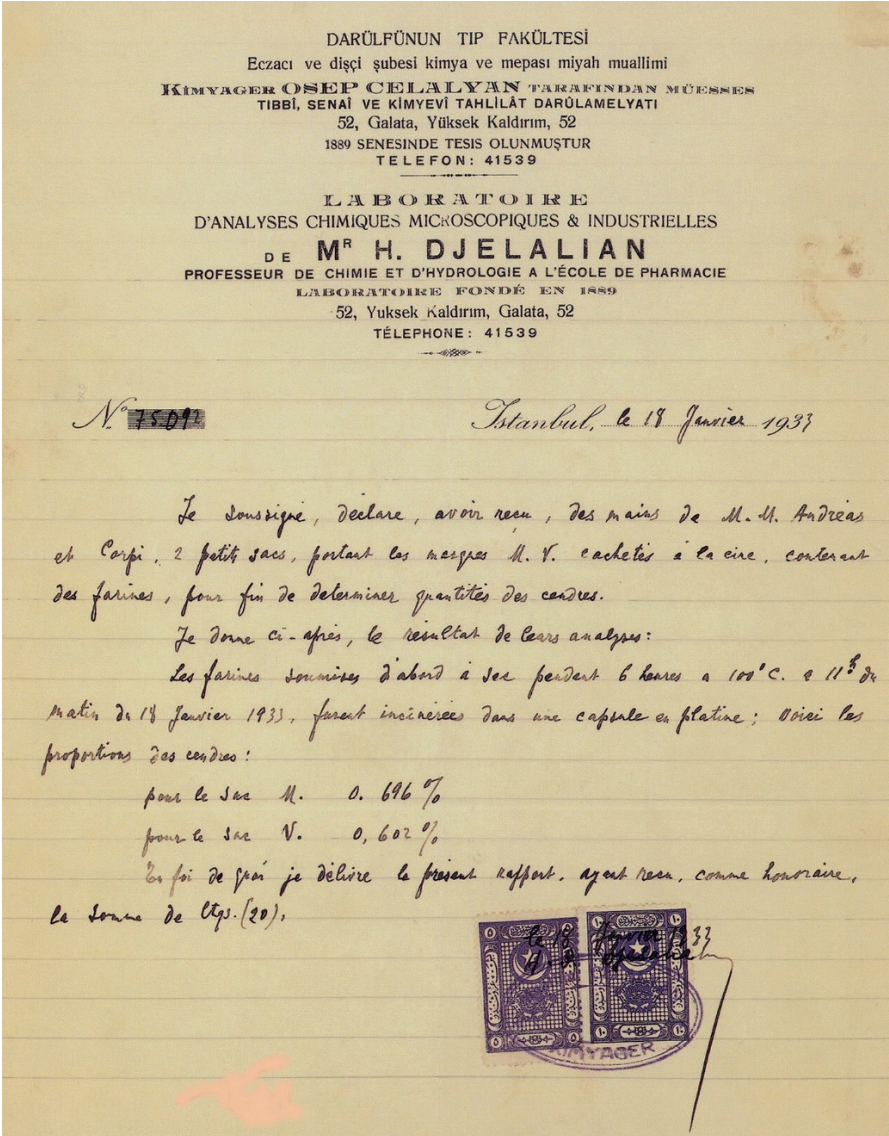 DARÜLFÜNUN TIP FAKÜLTESİ
Eczacı ve dişçi şubesi kimya ve mepası miyah muallimi
KİMYAGER OSEP CELALYAN TARAFINDAN MÜESSES
TIBBÎ, SENAÎ VE KİMYEVÎ TAHLİLÂT DARÛLAMELYATI
52, Galata, Yüksek Kaldırım, 52
1889 SENESINDE TESIS OLUNMUŞTUR
TELEFON: 41539
LABORATOIRE
D'ANALYSES CHIMIQUES MICROSCOPIQUES & INDUSTRIELLES
DE MR H. DJELALIAN
PROFESSEUR DE CHIMIE ET D'HYDROLOGIE A L'ÉCOLE DE PHARMACIE
LABORATOIRE FONDÉ EN 1889
52, Yuksek Kaldırım, Galata, 52
TÉLEPHONE: 41539
No 75.092 Istanbul, le 18 Janvier 1933
Je soussigné, déclare, avoir recu, des mains de M. M. Andréas
et Corpi, 2 petits sacs, portant les marques M. V. cachetés à la cire, contenant
des farines, pour fin de determiner quantités des cendres.
Je donne ci-après, le résultat de leurs analyses:
Les farines soumises d'abord à sec pendent 6 heures a 100°C. a 11h du
matin du 18 Janvier 1933, furent incinérées dans une capsule en platine; voici les
proportions des cendres:
pour le sac M. 0.696 %
pour le sac V. 0,602 %
En foi de quoi je délivre le présent rapport, ayant recu, comme honoraire,
la somme de Ltqs. (20).
le 18 Janvier 1933
H. Djelalian
KİMYAGER